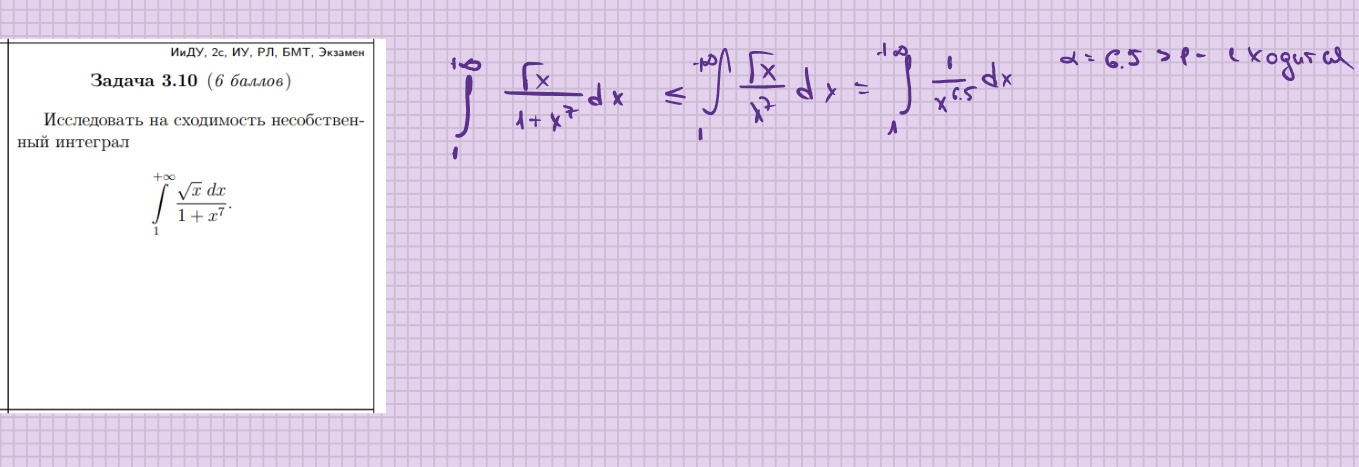 ИиДУ, 2с, ИУ, РЛ, БМТ, Экзамен
Задача 3.10 (6 баллов)
Исследовать на сходимость несобствен-
ный интеграл
+∞ ∫ 1 √x dx / 1 + x⁷ .
+∞ ∫ 1 √x / 1+x⁷ dx ≤ +∞ ∫ 1 √x / x⁷ dx = +∞ ∫ 1 1 / x^6.5 dx α = 6.5 > 1 - сходится